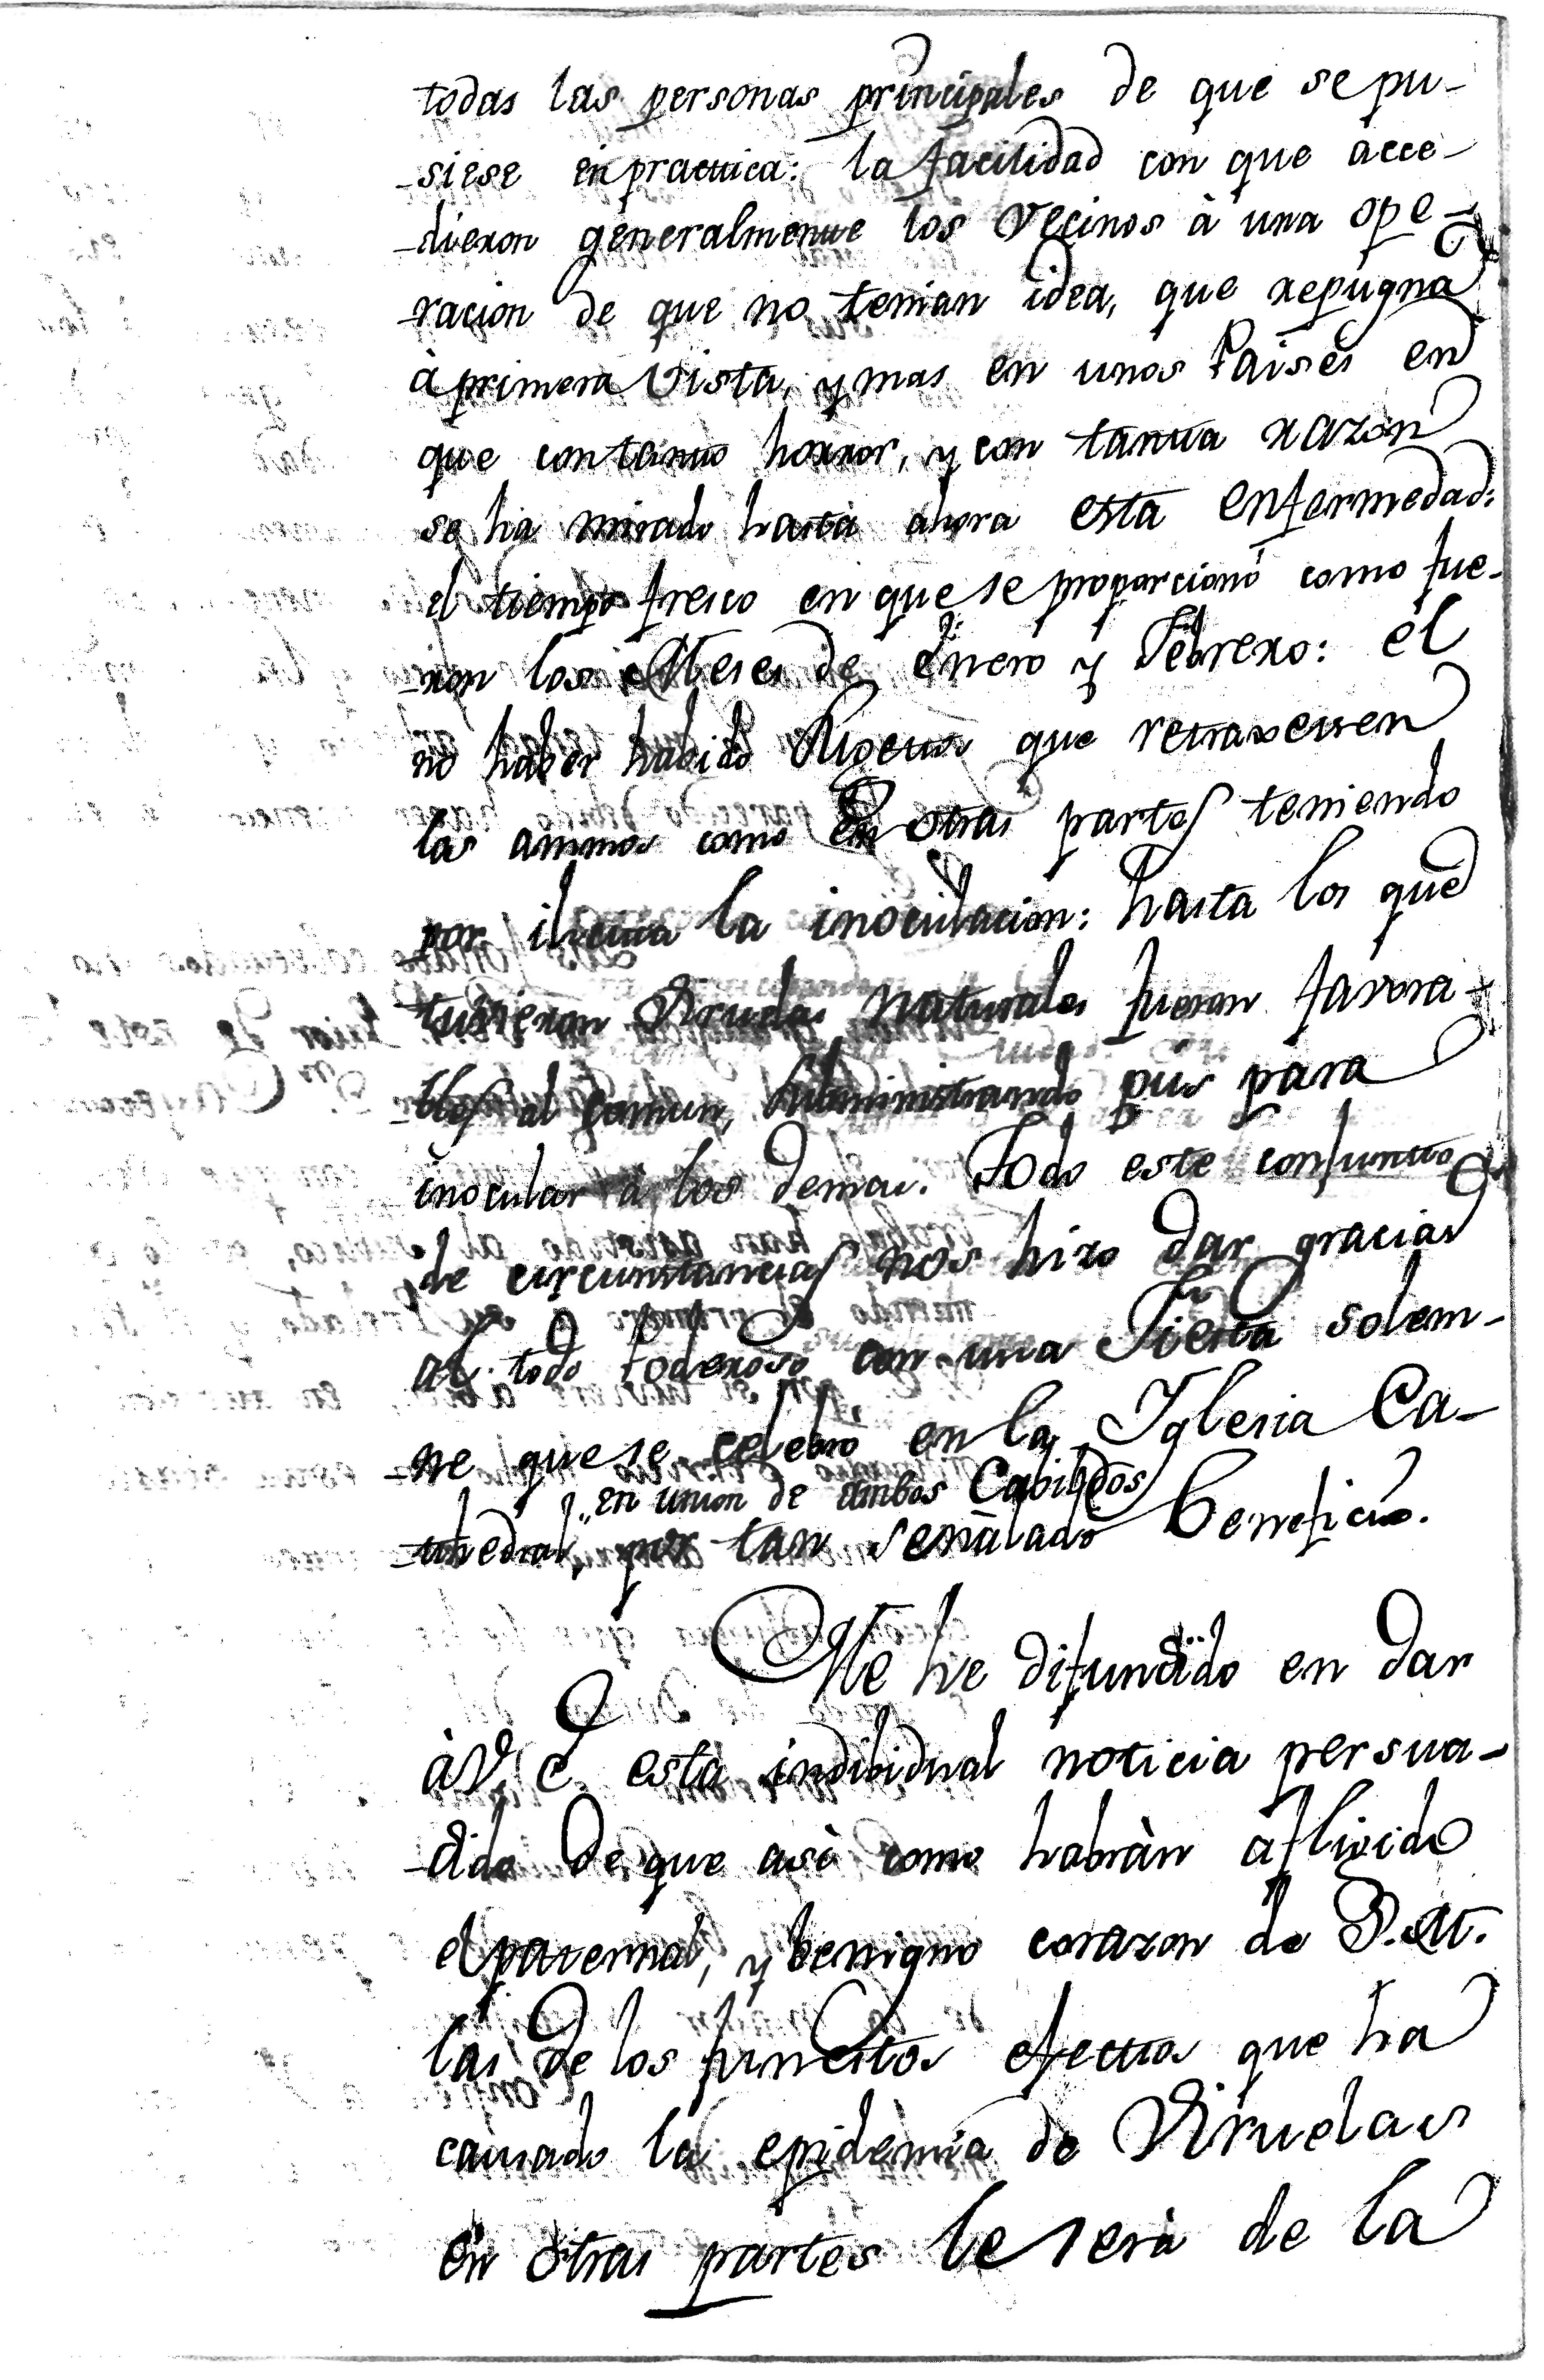 todas las personas principales de que se pu-
-siese en practtica: la facilidad con que acce-
-dieron generalmentte los Vecinos à una ope-
-racion de que no tenian idea, que repugna
à primera Vista, y mas en unos Paises en
que con tantto horror, y con tantta razon
se ha mirado hasta ahora esta enfermedad:
el tiempo fresco en que se proporcionó como fue-
-ron los Meses de Enero y Febrero: el
no haber habido Sugettos que retraxesen
los animos como en otras partes teniendo
por ilicitta la inoculacion: hasta los que
tubieron Viruelas Naturales fueron favora-
-bles al comun, subministrando pus para
inocular à los demas. Todo este conjuntto
de circunstancias nos hizo dar gracias
al todo Poderoso con una Fiesta solem-
-ne que se celebró en la Iglesia Ca-
en union de ambos Cabildos
-thedral, por tan señalado beneficio.
Me he difundido en dar
à V. E. esta indibidual noticia persua-
-dido de que asi como habràn afligido
el paternal, y benigno corazon de S. M.
las de los funestos efecttos que ha
causado la epidemia de Viruelas
en otras partes le serà de la